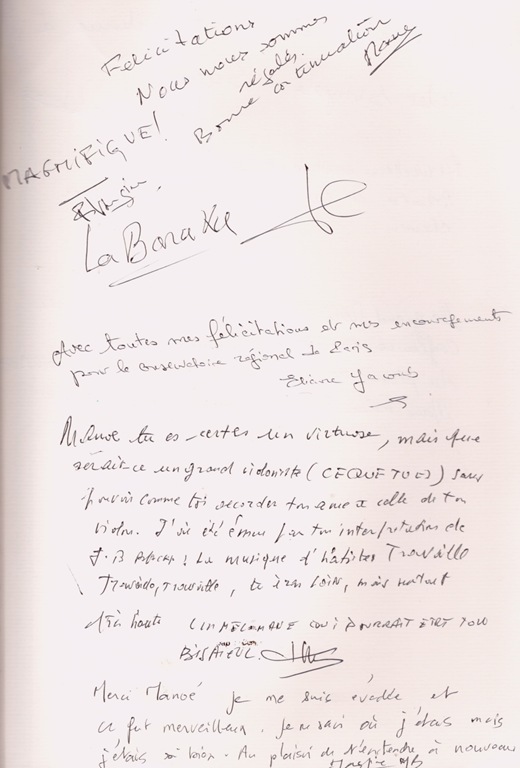 Félicitations
Nous nous sommes
régalés.
Bonne continuation
MAGNIFIQUE!
La Baraka
Avec toutes mes félicitations et mes encouragements
pour le conservatoire régional de Paris
Eliane
Manoé tu es certes un virtuose, mais que
serait-ce un grand violoniste (CE QUE TU ES) sans
pouvoir comme toi accorder ton âme à celle de ton
violon. J'ai été ému par ton interprétation de
J. B La musique d' Travaille
Travaille, travaille, tu iras LOIN, mais surtout
très haute UN MELOMANE QUI POURRAIT ETRE TON
BISAIEUL.
Merci Manoé je me suis évadée et
ce fut merveilleux. Je ne sais où j'étais mais
j'étais si bien. Au plaisir de t'entendre à nouveau